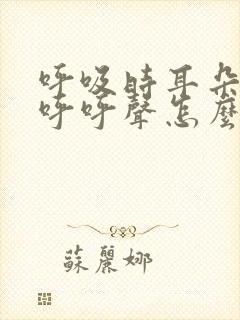 呼吸時耳朵
呼呼聲怎麼
蘇麗娜